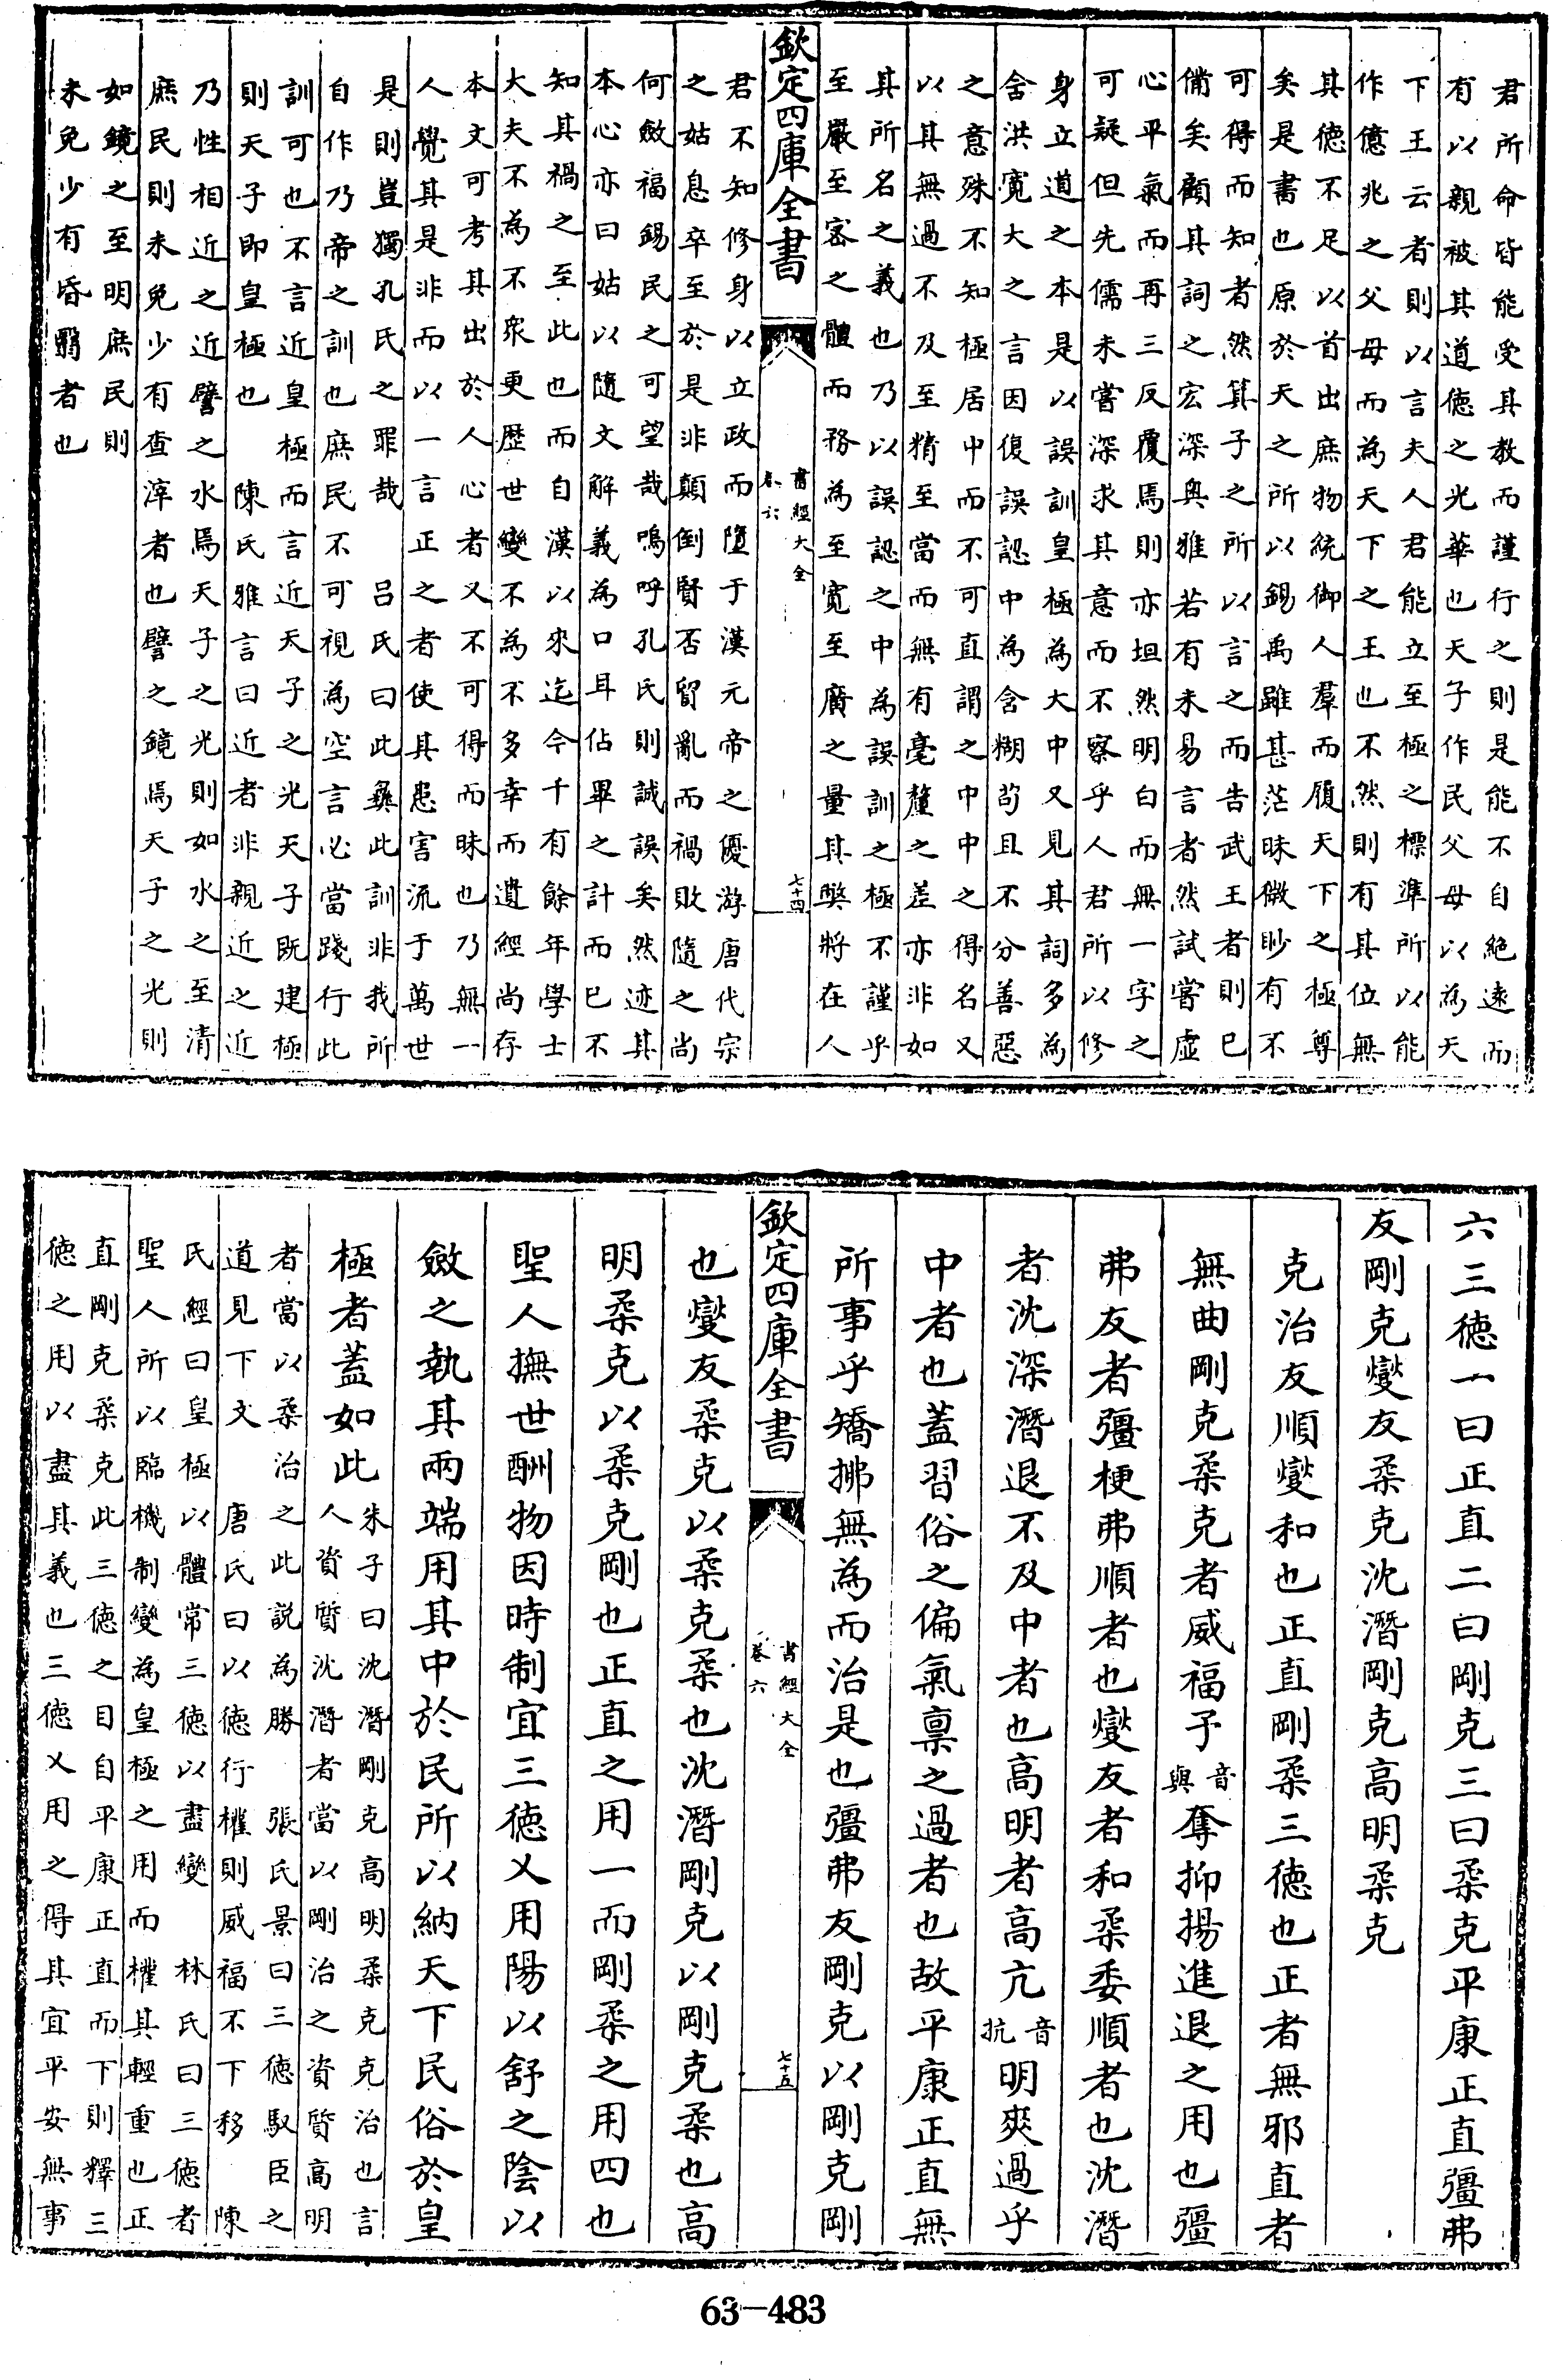 君所命皆能受其教而謹行之則是能不自絕遠而
有以親被其道徳之光華也天子作民父母以為天
下王云者則以言夫人君能立至極之標準所以能
作億兆之父母而為天下之王也不然則有其位無
其徳不足以首出庶物統御人羣而履天下之極尊
矣是書也原於天之所以錫禹雖甚茫昧微眇有不
可得而知者然箕子之所以言之而告武王者則已
備矣顧其詞之宏深奥雅若有未易言者然試嘗虚
心平氣而再三反覆焉則亦坦然明白而無一字之
可疑但先儒未嘗深求其意而不察乎人君所以修
身立道之本是以誤訓皇極為大中又見其詞多為
舍洪寛大之言因復誤認中為含糊苟且不分善惡
之意殊不知極居中而不可直謂之中中之得名又
以其無過不及至精至當而無有毫釐之差亦非如
其所名之義也乃以誤認之中為誤訓之極不謹乎
至嚴至宻之體而務為至寛至廣之量其弊將在人
欽定四庫全書
書經大全
卷六
七十四
君不知修身以立政而墮于漢元帝之優游唐代宗
之姑息卒至於是非顛倒賢否貿亂而禍敗隨之尚
何斂福錫民之可望哉嗚呼孔氏則誠誤矣然迹其
本心亦曰姑以隨文解義為口耳佔畢之計而已不
知其禍之至此也而自漢以來迄今千有餘年學士
大夫不為不衆更歴世變不為不多幸而遺經尚存
本文可考其出於人心者又不可得而昧也乃無一
人覺其是非而以一言正之者使其患害流于萬世
是則豈獨孔氏之罪哉 吕氏曰此彞此訓非我所
自作乃帝之訓也庶民不可視為空言必當踐行此
訓可也不言近皇極而言近天子之光天子既建極
則天子即皇極也 陳氏雅言曰近者非親近之近
乃性相近之近譬之水焉天子之光則如水之至清
庶民則未免少有查滓者也譬之鏡焉天子之光則
如鏡之至明庶民則
未免少有昏翳者也
六三徳一曰正直二曰剛克三曰柔克平康正直彊弗
友剛克燮友柔克沈潛剛克髙明柔克
克治友順燮和也正直剛柔三徳也正者無邪直者
無曲剛克柔克者威福予音與奪抑揚進退之用也彊
弗友者彊梗弗順者也燮友者和柔委順者也沈潛
者沈深潛退不及中者也髙明者髙亢音抗明爽過乎
中者也蓋習俗之偏氣禀之過者也故平康正直無
所事乎矯拂無為而治是也彊弗友剛克以剛克剛
欽定四庫全書
書經大全
卷六
七十五
也燮友柔克以柔克柔也沈潛剛克以剛克柔也髙
明柔克以柔克剛也正直之用一而剛柔之用四也
聖人撫世酬物因時制宜三徳乂用陽以舒之陰以
斂之執其兩端用其中於民所以納天下民俗於皇
極者蓋如此朱子曰沈潛剛克髙明柔克克治也言
人資質沈潛者當以剛治之資質髙明
者當以柔治之此説為勝 張氏景曰三徳馭臣之
道見下文 唐氏曰以徳行權則威福不下移 陳
氏經曰皇極以體常三徳以盡變 林氏曰三徳者
聖人所以臨機制變為皇極之用而權其輕重也正
直剛克柔克此三徳之目自平康正直而下則釋三
徳之用以盡其義也三徳乂用之得其宜平安無事
63—483